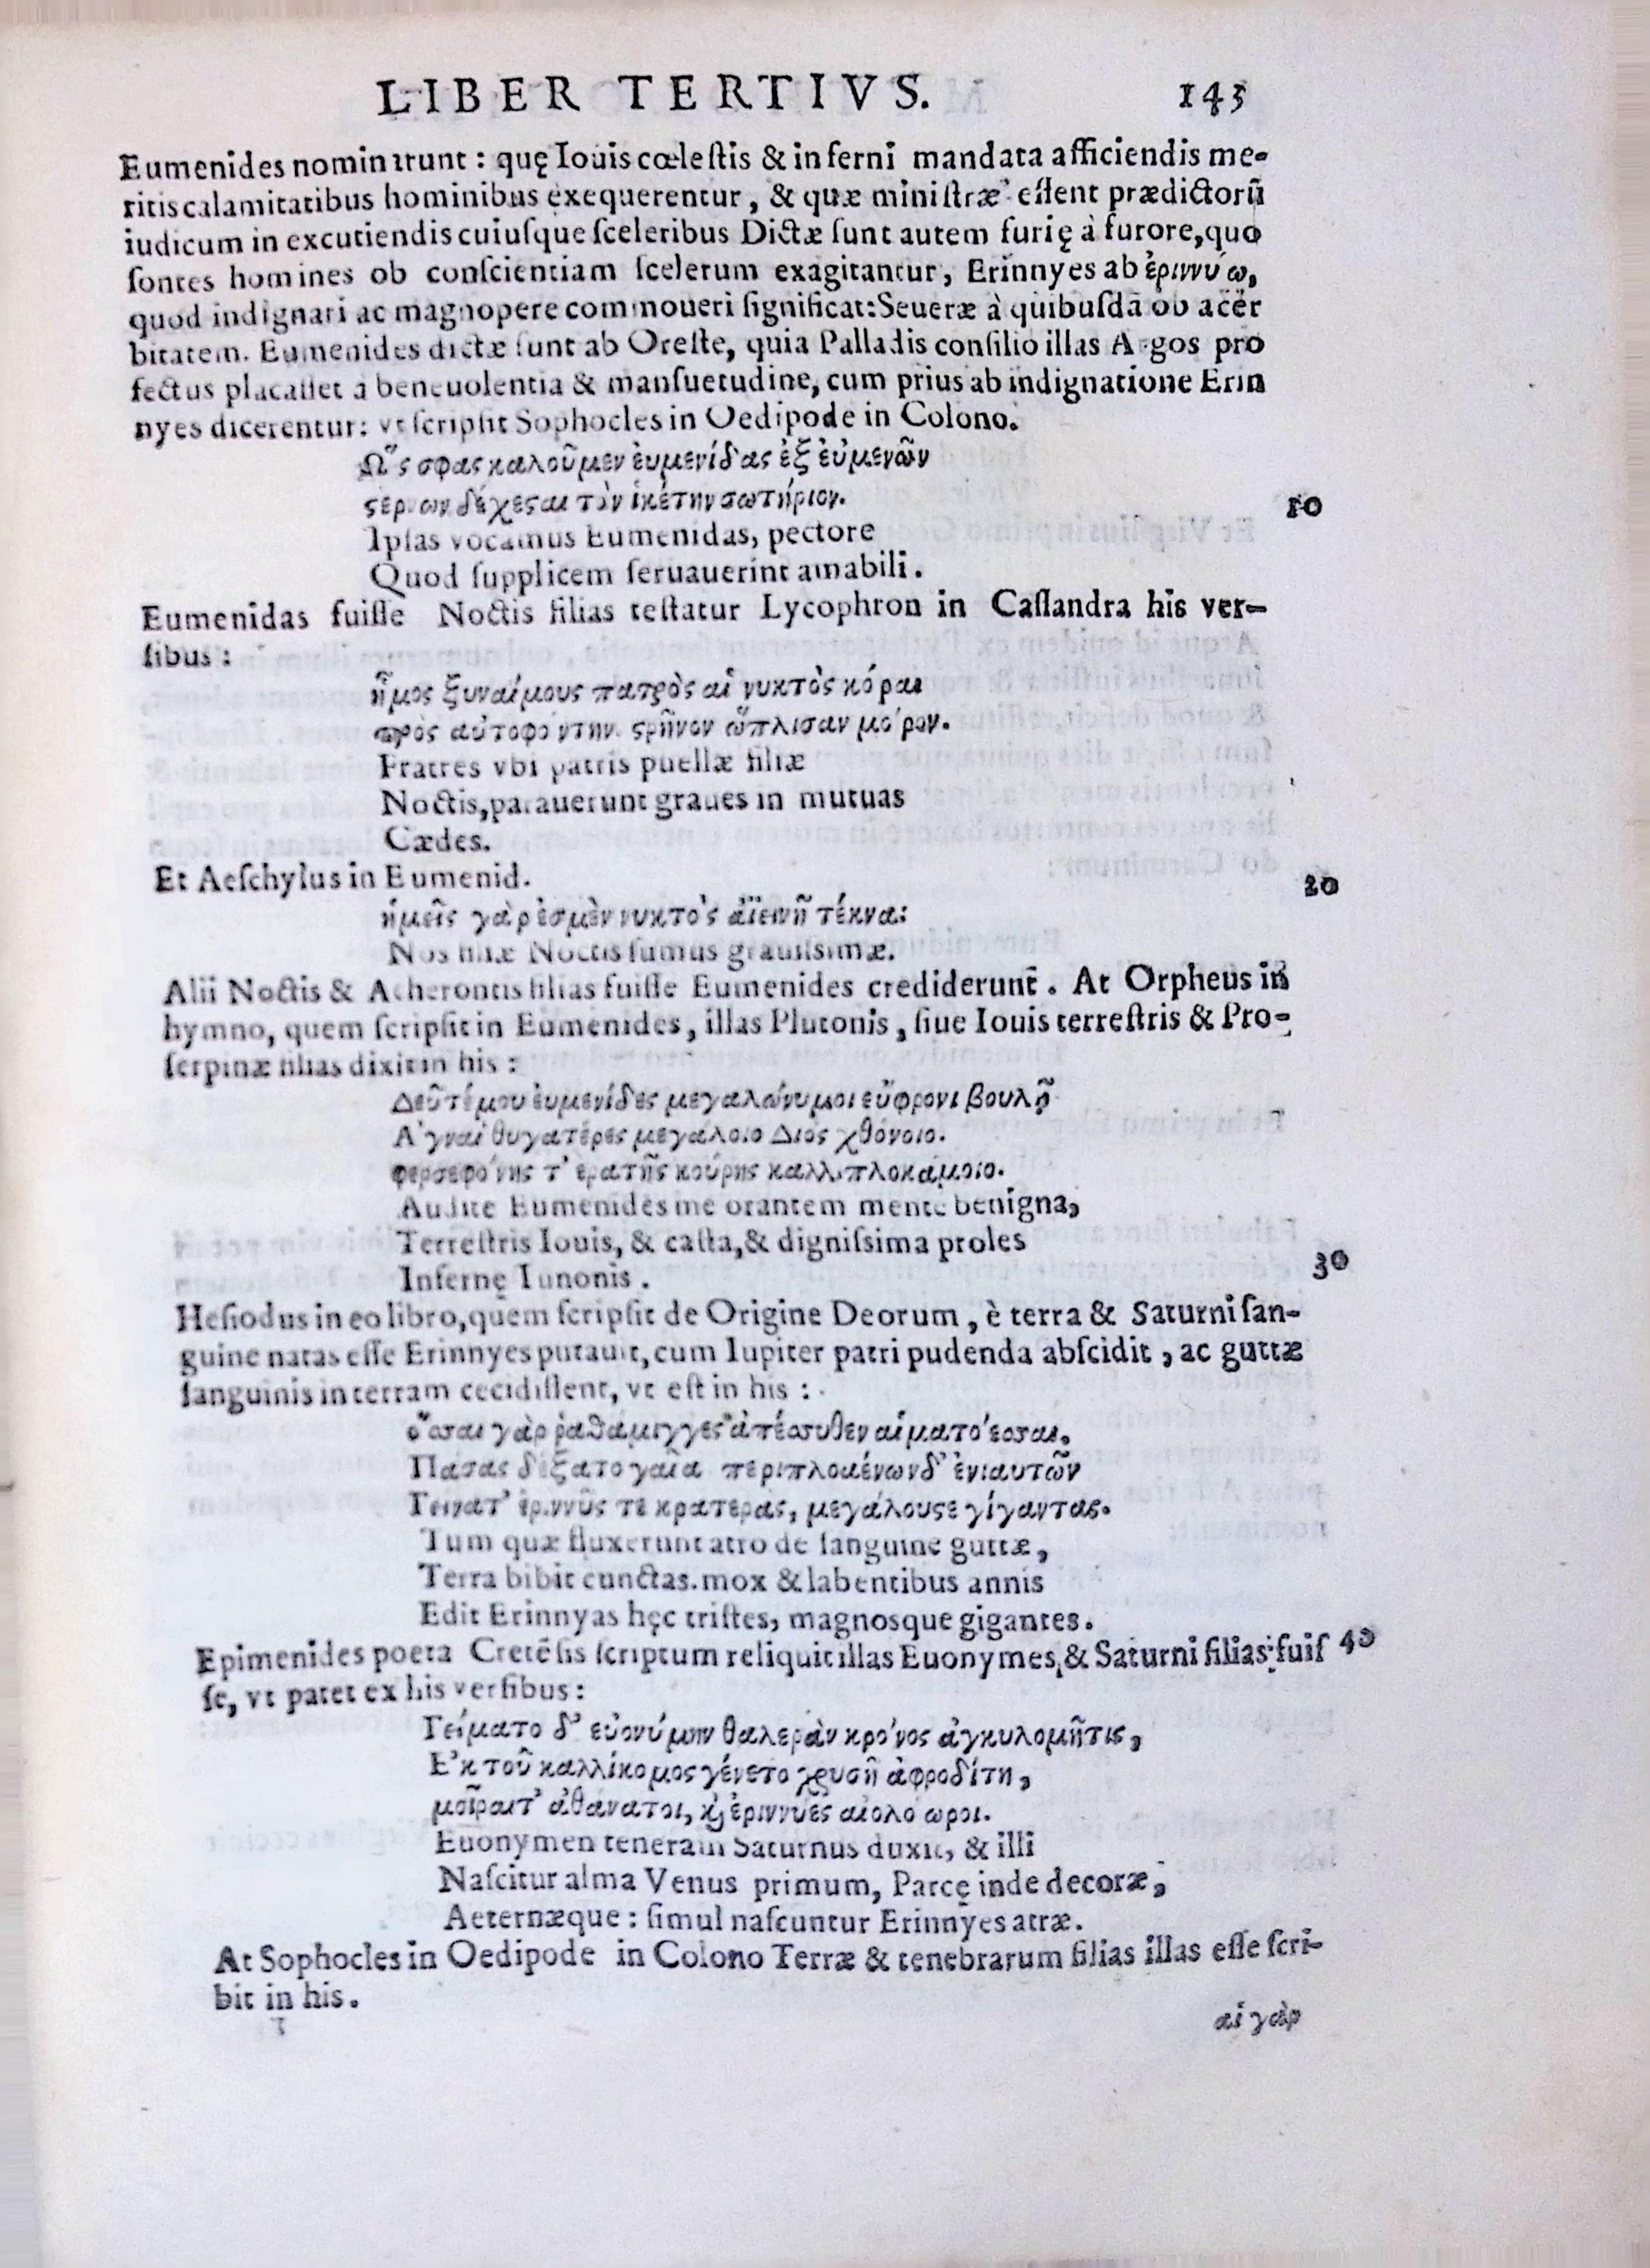 LIBER TERTIVS. 145
Eumenides nominarunt : quę Iouis cœlestis & inferni mandata afficiendis me-
ritis calamitatibus hominibus exequerentur, & quæ ministræ essent prædictorū
iudicum in excutiendis cuiusque sceleribus Dictæ sunt autem furię à furore, quo
sontes homines ob conscientiam scelerum exagitantur, Erinnyes ab ἐριννύω,
quod indignari ac magnopere commoueri significat: Seueræ à quibusdā ob acer
bitatem. Eumenides dictæ sunt ab Oreste, quia Palladis consilio illas Argos pro
fectus placasset à beneuolentia & mansuetudine, cum prius ab indignatione Erin
nyes dicerentur: vt scripsit Sophocles in Oedipode in Colono.
Ὥς σφας καλοῦμεν ἐυμενίδας ἐξ ἐυμενῶν
ϛέρνων δέχεϛαι τὸν ἱκέτην σωτήριον. 10
Ipsas vocamus Eumenidas, pectore
Quod supplicem seruauerint amabili.
Eumenidas fuisse Noctis filias testatur Lycophron in Cassandra his ver-
sibus :
ἦμος ξυναίμους πατρὸς αἱ νυκτὸς κόραι
πρὸς αὐτοφόντην ϛρῆνον ὥπλισαν μόρον.
Fratres vbi patris puellæ filiæ
Noctis, parauerunt graues in mutuas
Cædes.
Et Aeschylus in Eumenid. 20
ἡμεῖς γὰρ ἐσμὲν νυκτὸς ἀϊεινῆ τέκνα:
Nos filiæ Noctis sumus grauissimæ.
Alii Noctis & Acherontis filias fuisse Eumenides crediderunt. At Orpheus in
hymno, quem scripsit in Eumenides, illas Plutonis, siue Iouis terrestris & Pro-
serpinæ filias dixit in his :
Δεῦτέ μου ἐυμενίδες μεγαλώνυμοι εὔφρονι βουλῇ
Ἁγναὶ θυγατέρες μεγάλοιο Διὸς χθόνοιο.
φερσεφόνης τ' ἐρατῆς κούρης καλλιπλοκάμοιο.
Audite Eumenides me orantem mente benigna,
Terrestris Iouis, & casta, & dignissima proles
Infernę Iunonis. 30
Hesiodus in eo libro, quem scripsit de Origine Deorum, è terra & Saturni san-
guine natas esse Erinnyes putauit, cum Iupiter patri pudenda abscidit, ac guttæ
sanguinis in terram cecidissent, vt est in his :
ὅσσαι γὰρ ῥαθάμιγγες ἀπέσσυθεν αἱματόεσσαι,
Πάσας δέξατο γαῖα περιπλομένων δ' ἐνιαυτῶν
Γείνατ' ἐριννῦς τε κρατερὰς, μεγάλουςε γίγαντας.
Tum quæ fluxerunt atro de sanguine guttæ,
Terra bibit cunctas. mox & labentibus annis
Edit Erinnyas hęc tristes, magnosque gigantes.
Epimenides poeta Cretēsis scriptum reliquit illas Euonymes, & Saturni filias fuis 40
se, vt patet ex his versibus :
Γείματο δ' εὐονύμην θαλερὰν κρόνος ἀγκυλομῆτις,
Ἐκ τοῦ καλλίκομος γένετο χρυσῆ ἀφροδίτη,
μοῖραιτ' ἀθάνατοι, ϗ ἐριννύες αἰολόωροι.
Euonymen teneram Saturnus duxit, & illi
Nascitur alma Venus primum, Parcę inde decoræ,
Aeternæque : simul nascuntur Erinnyes atræ.
At Sophocles in Oedipode in Colono Terræ & tenebrarum filias illas esse scri-
bit in his.
T αἱ γὰρ